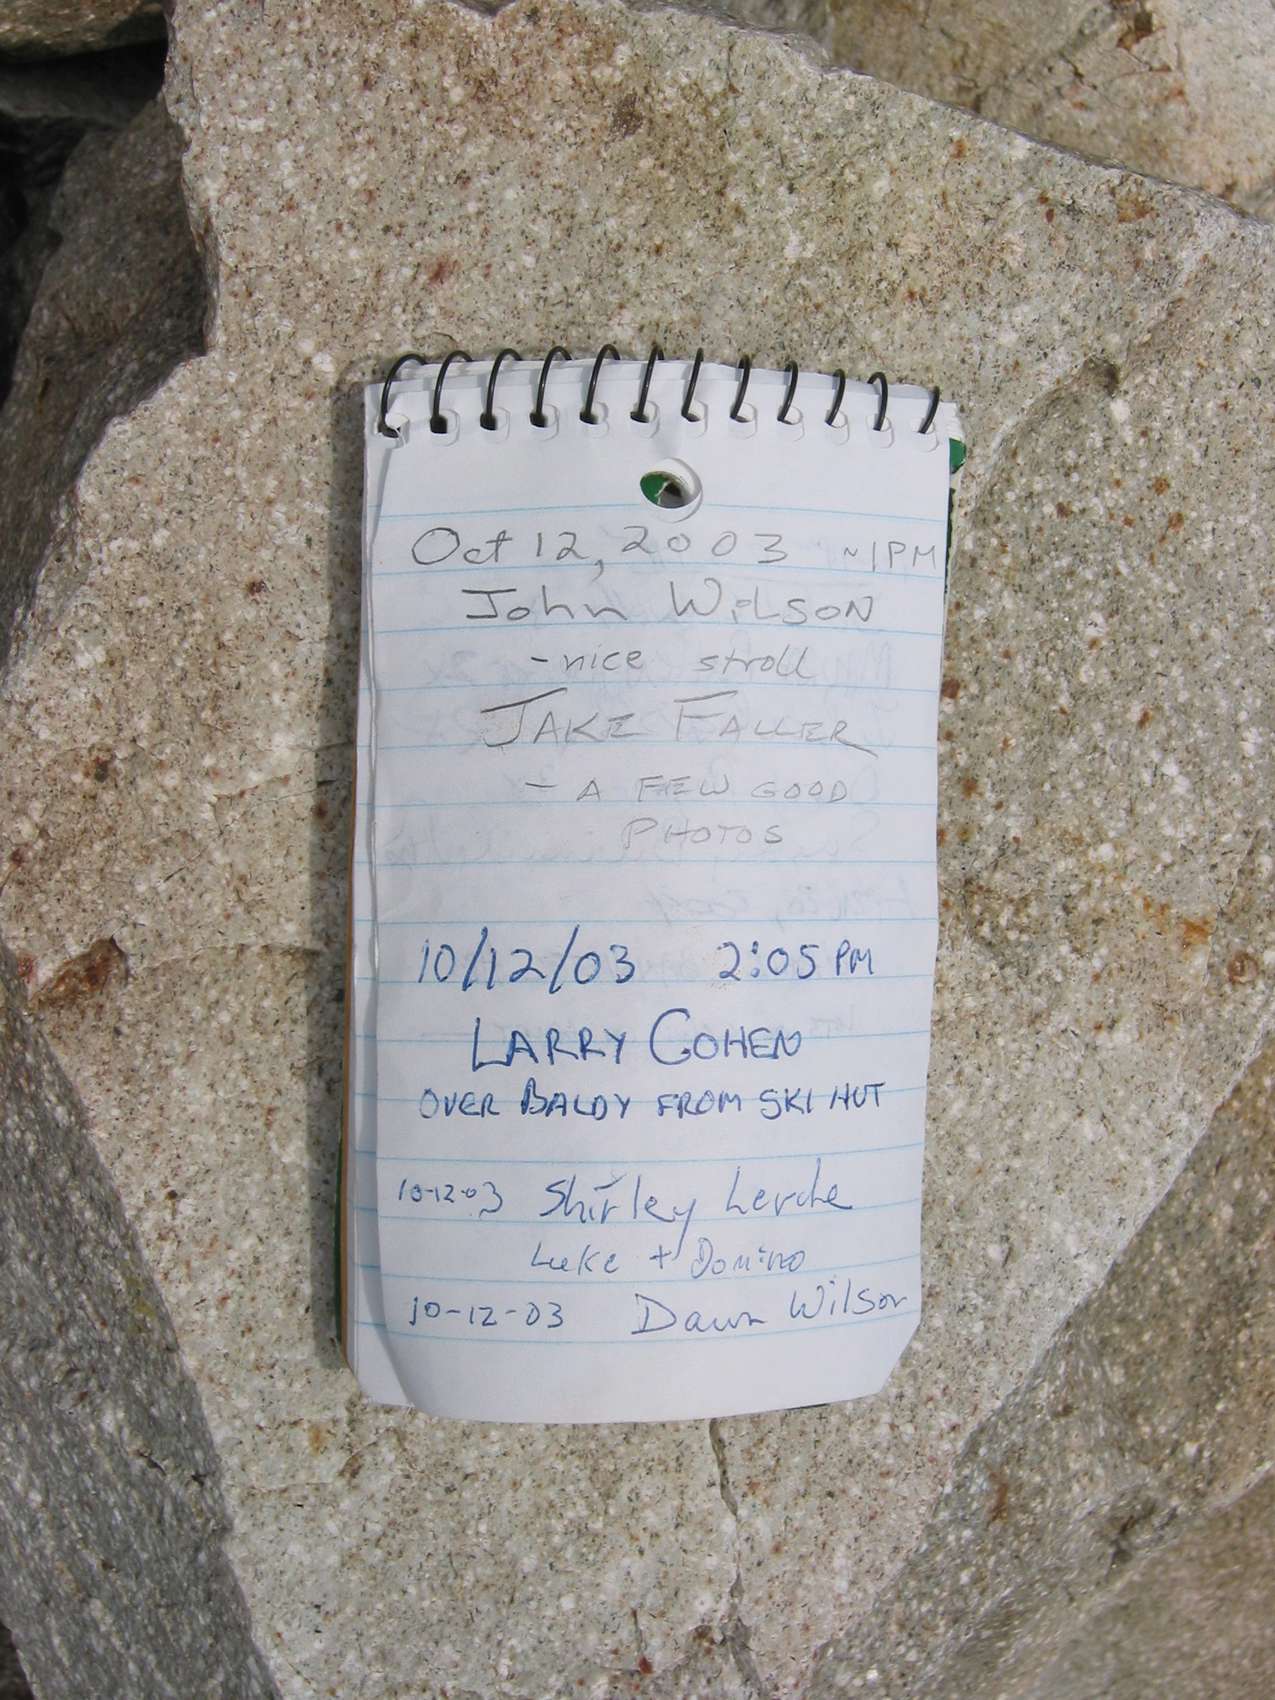 Oct 12, 2003 ~1PM
John Wilson
- nice stroll
JAKE FALLER
- A FEW GOOD
PHOTOS
10/12/03 2:05 PM
LARRY COHEN
OVER BALDY FROM SKI HUT
10-12-03 Shirley Lerche
Luke + Domino
10-12-03 Dawn Wilson